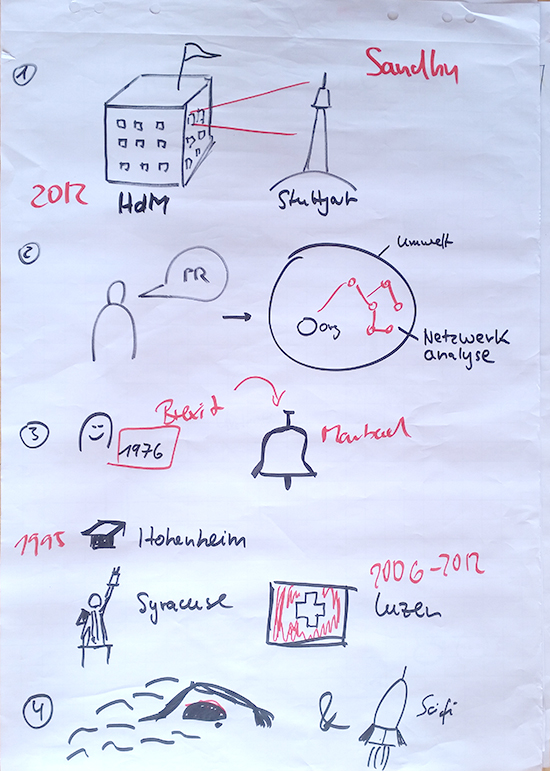 1
Sandhu
2012
HdM
Stuttgart
2
PR
Umwelt
Org
Netzwerk
analyse
3
1976
Brexit
Marbach
1995
Hohenheim
Syracuse
2006-2012
Luzern
4
&
Scifi